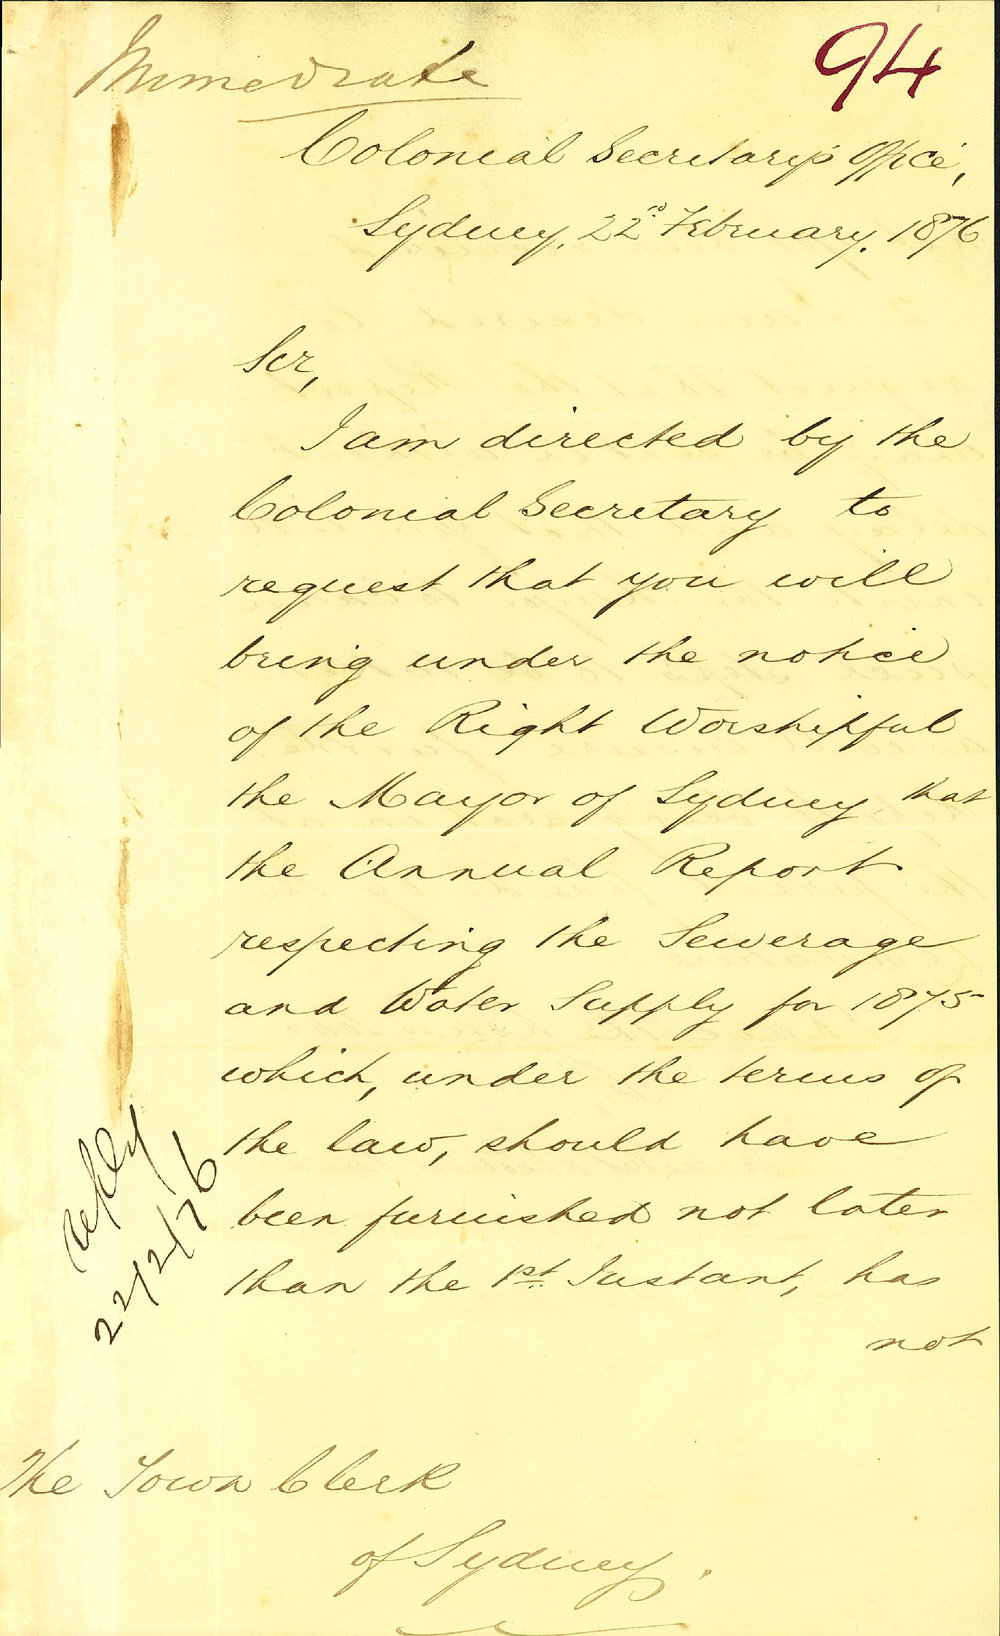 Immediate
94
Colonial Secretary's Office,
Sydney, 22nd. February, 1876
Sir,
I am directed by the
Colonial Secretary to
request that you will
bring under the notice
of the Right Worshipful
the Mayor of Sydney, that
the Annual Report
respecting the Sewerage
and Water Supply for 1875
which, under the terms of
the law, should have
been furnished not later
than the 1st. Instant, has
not
reply
22/2/76
The Town Clerk
of Sydney.